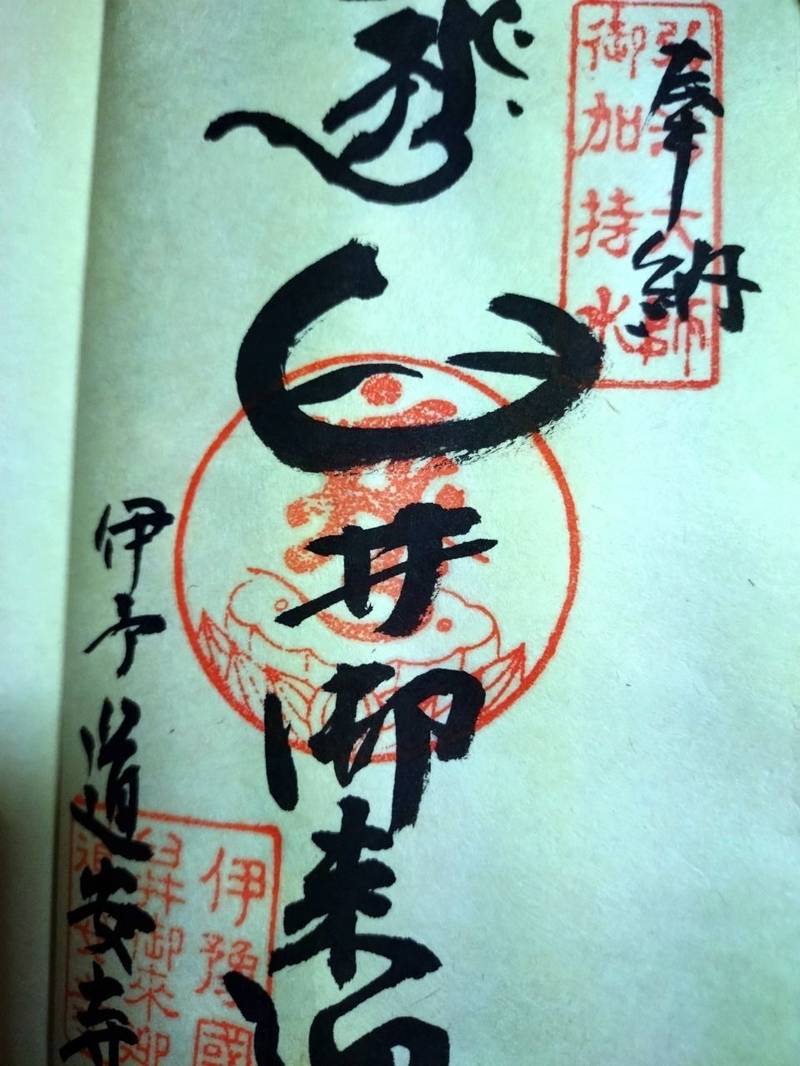 奉納
弘法大師
御加持水
臼井御来迎
伊豫國
臼井御來迎
伊予道安寺